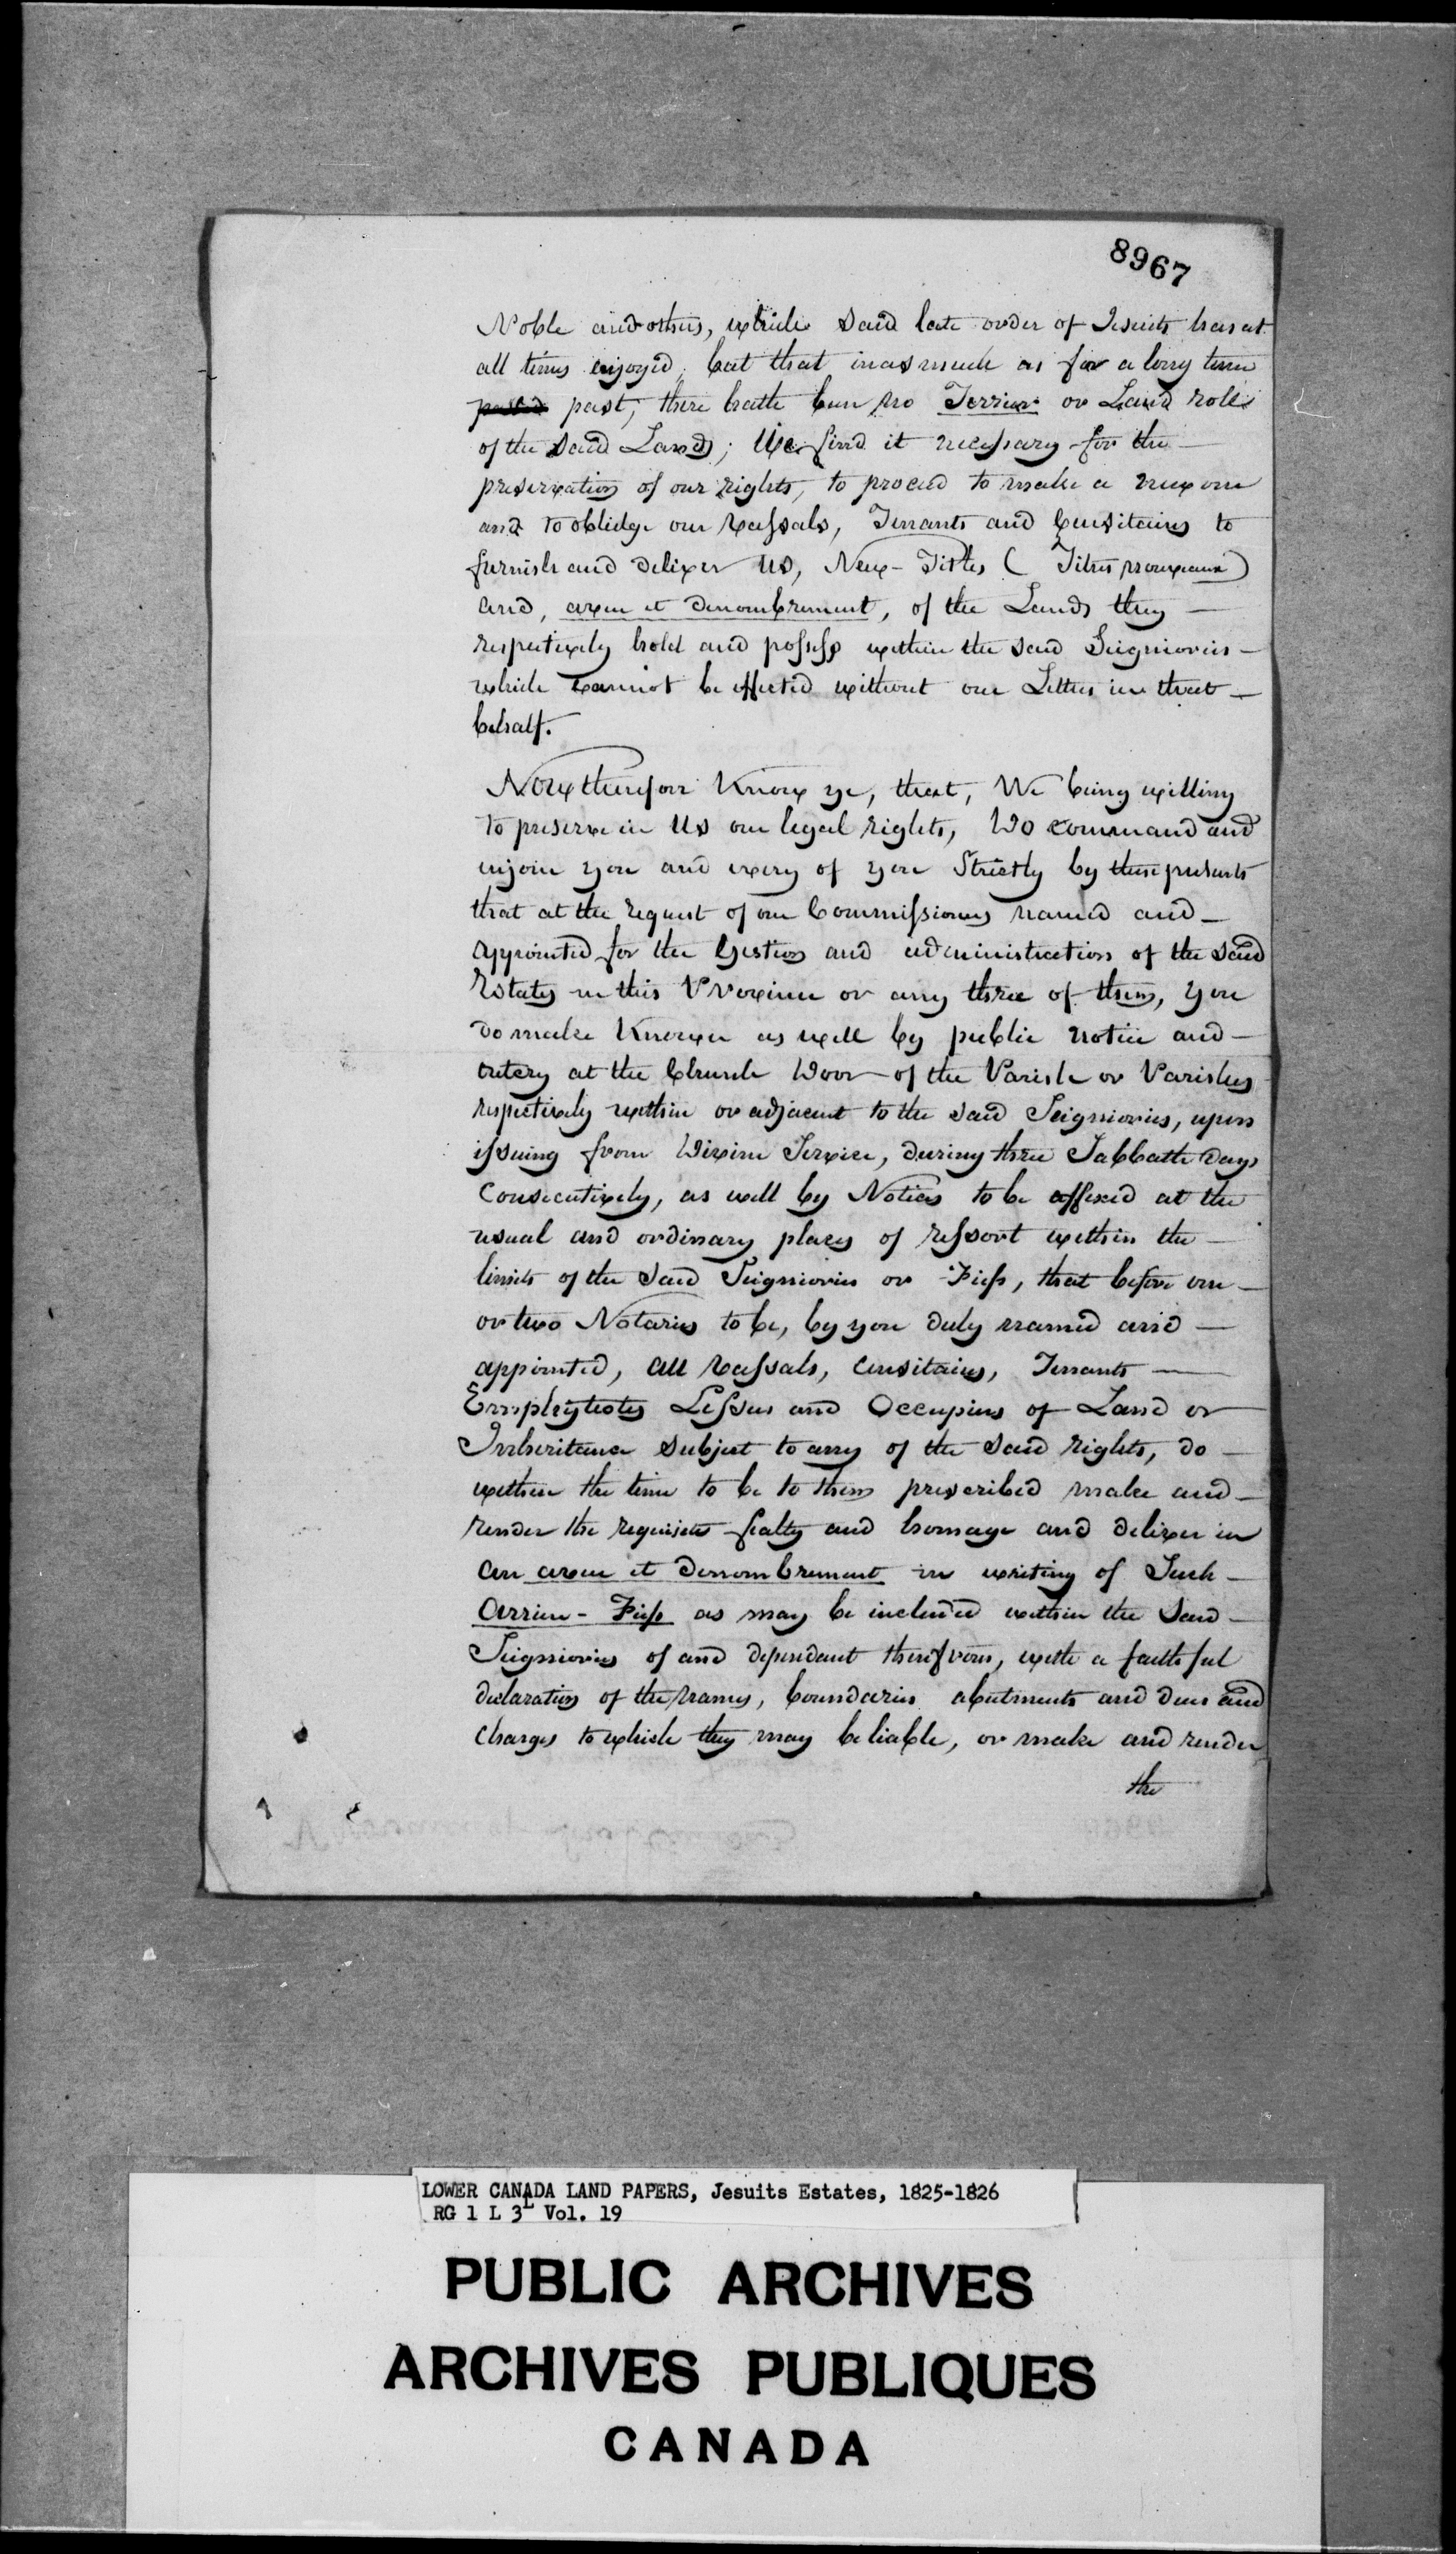 8967
Noble and others, which said late order of Jesuits has at
all times enjoyed, but that inasmuch as for a long time
past, there hath been no Terrier or Land roll
of the said Lands; We find it necessary for the
preservation of our rights, to proceed to make a new one
and to oblidge our Vassals, Tenants and Censitaires to
furnish and deliver us, New-Titles ( Titres nouveaux )
and, aveu et denombrement, of the Lands they
respectively hold and possess within the said Seigniories
which cannot be effected without our Letters in that
behalf.
Now therefore Know ye, that, We being willing
to preserve in Us our legal rights, Do command and
injoin you and every of you Strictly by these presents
that at the request of our Commissioners named and
appointed for the Gestion and administration of the said
Estates in this Province or any three of them, you
do make Known as well by public notice and
outcry at the Church Door of the Parish or Parishes
respectively within or adjacent to the said Seigniories, upon
issuing from Divine Service, during three Sabbath Days
Consecutively, as well by Notices to be affixed at the
usual and ordinary places of ressort within the
limits of the said Seigniories or Fiefs, that before one
or two Notaries to be, by you duly named and
appointed, all Vassals, Censitaires, Tenants
Emphyteotes Lessees and Occupiers of Land or
Inheritance subject to any of the said rights, do
within the time to be to them prescribed make and
render the requisite fealty and homage and deliver in
an aveu et denombrement in writing of Such
Arriere-Fiefs as may be included within the said
Seigniories of and dependant therefrom, with a faithful
declaration of the names, boundaries abutments and dues and
Charges to which they may be liable, or make and render
the
LOWER CANADA LAND PAPERS, Jesuits Estates, 1825-1826
RG 1 L 3L Vol. 19
PUBLIC ARCHIVES
ARCHIVES PUBLIQUES
CANADA